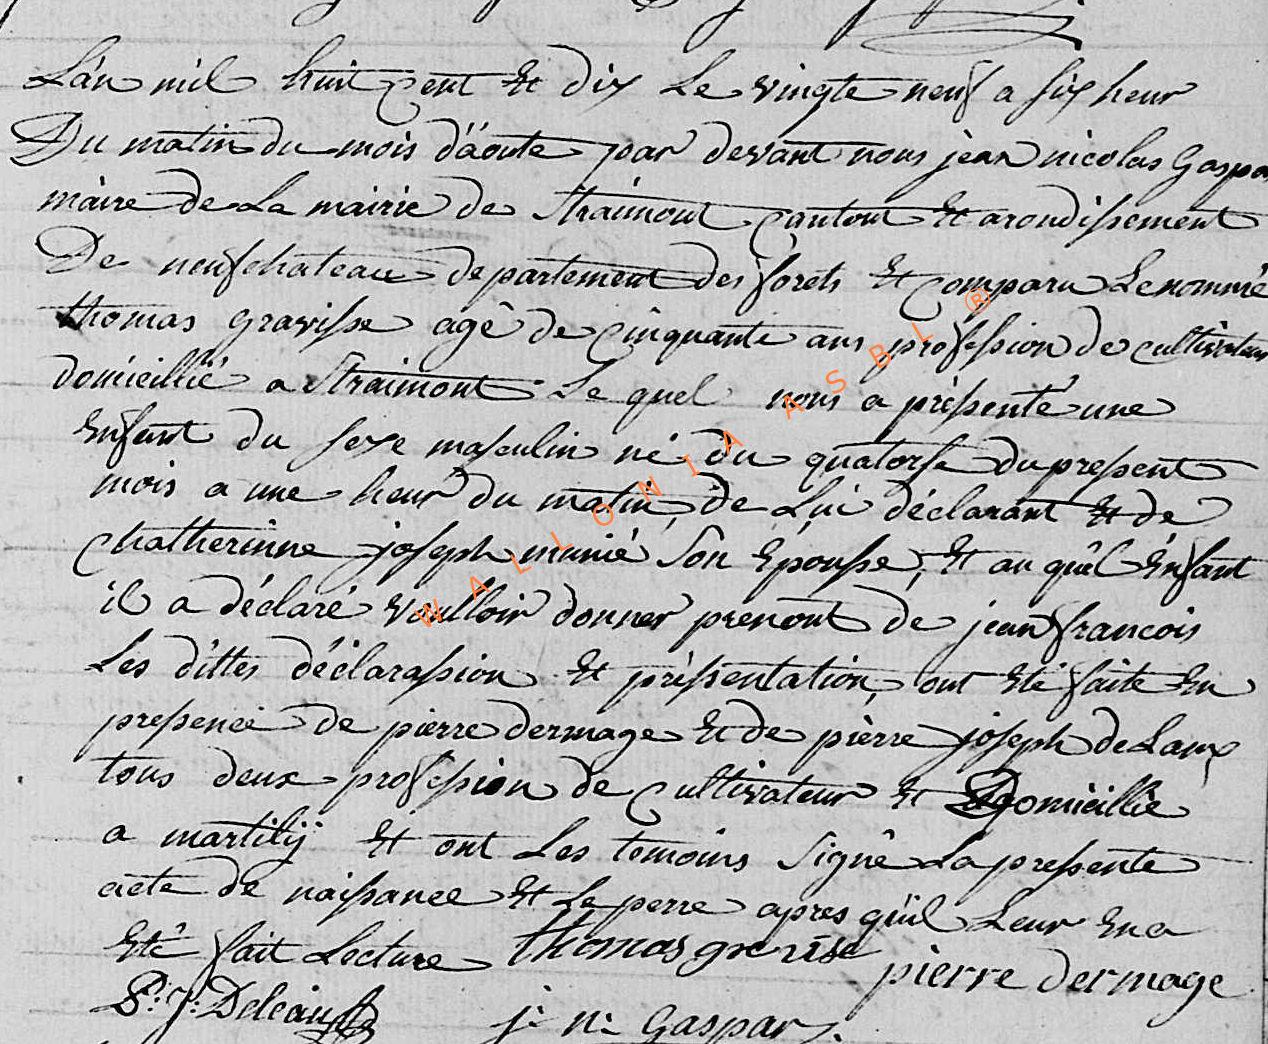 L'an mil huit cent et dix le vingte neuf a six heur
Du matin du mois d'aoute par devant nous jean nicolas Gaspar
maire de La mairie de Straimont cantont et arondissement
De neufchateau departement des forets et comparu Le nommé
thomas gravisse agé de cinquante ans profession de cultivateur
domicillié a Straimont Le quel nous a présenté une
Enfant du sexe masculin né du quatorse du present
mois a une heur du matin, de Lui déclarant et de
Chatherinne joseph munié son Épousse, et au quel Énfant
il a déclaré voulloir donner prenont de jean francois
Les dittes déclarassion et présentation, ont été faite En
presence de pierre dermage et de pierre joseph de Laux
tous deux profession de cultivateur et Domicillié
a martilij et ont Les temoins Signé La pressente
acte de naissance et Le perre apres qu'il Leur En a
Eté fait Lecture thomas gravise pierre dermage
P: J: Deleau
j: n: Gaspar
WALLONIA ASBL ®